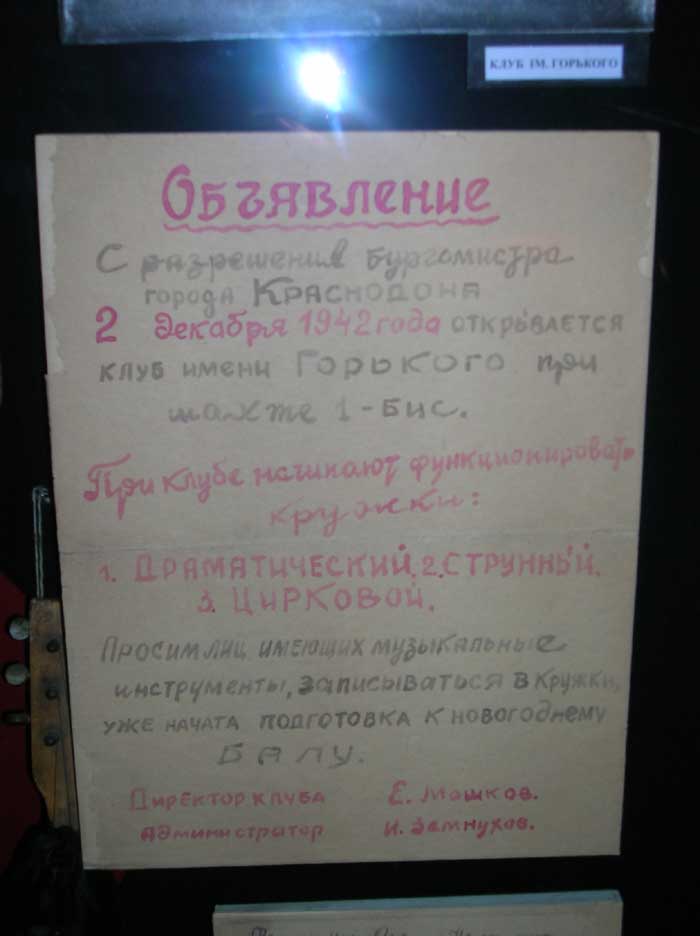 КЛУБ ІМ. ГОРЬКОГО
Объявление
С разрешения бургомистра
города Краснодона
2 декабря 1942 года открывается
клуб имени Горького при
шахте 1-бис.
При клубе начинают функционировать
кружки:
1. Драматический, 2. Струнный,
3. Цирковой.
Просим лиц, имеющих музыкальные
инструменты, записываться в кружки,
уже начата подготовка к новогоднему
балу.
Директор клуба Е. Мошков.
Администратор И. Земнухов.